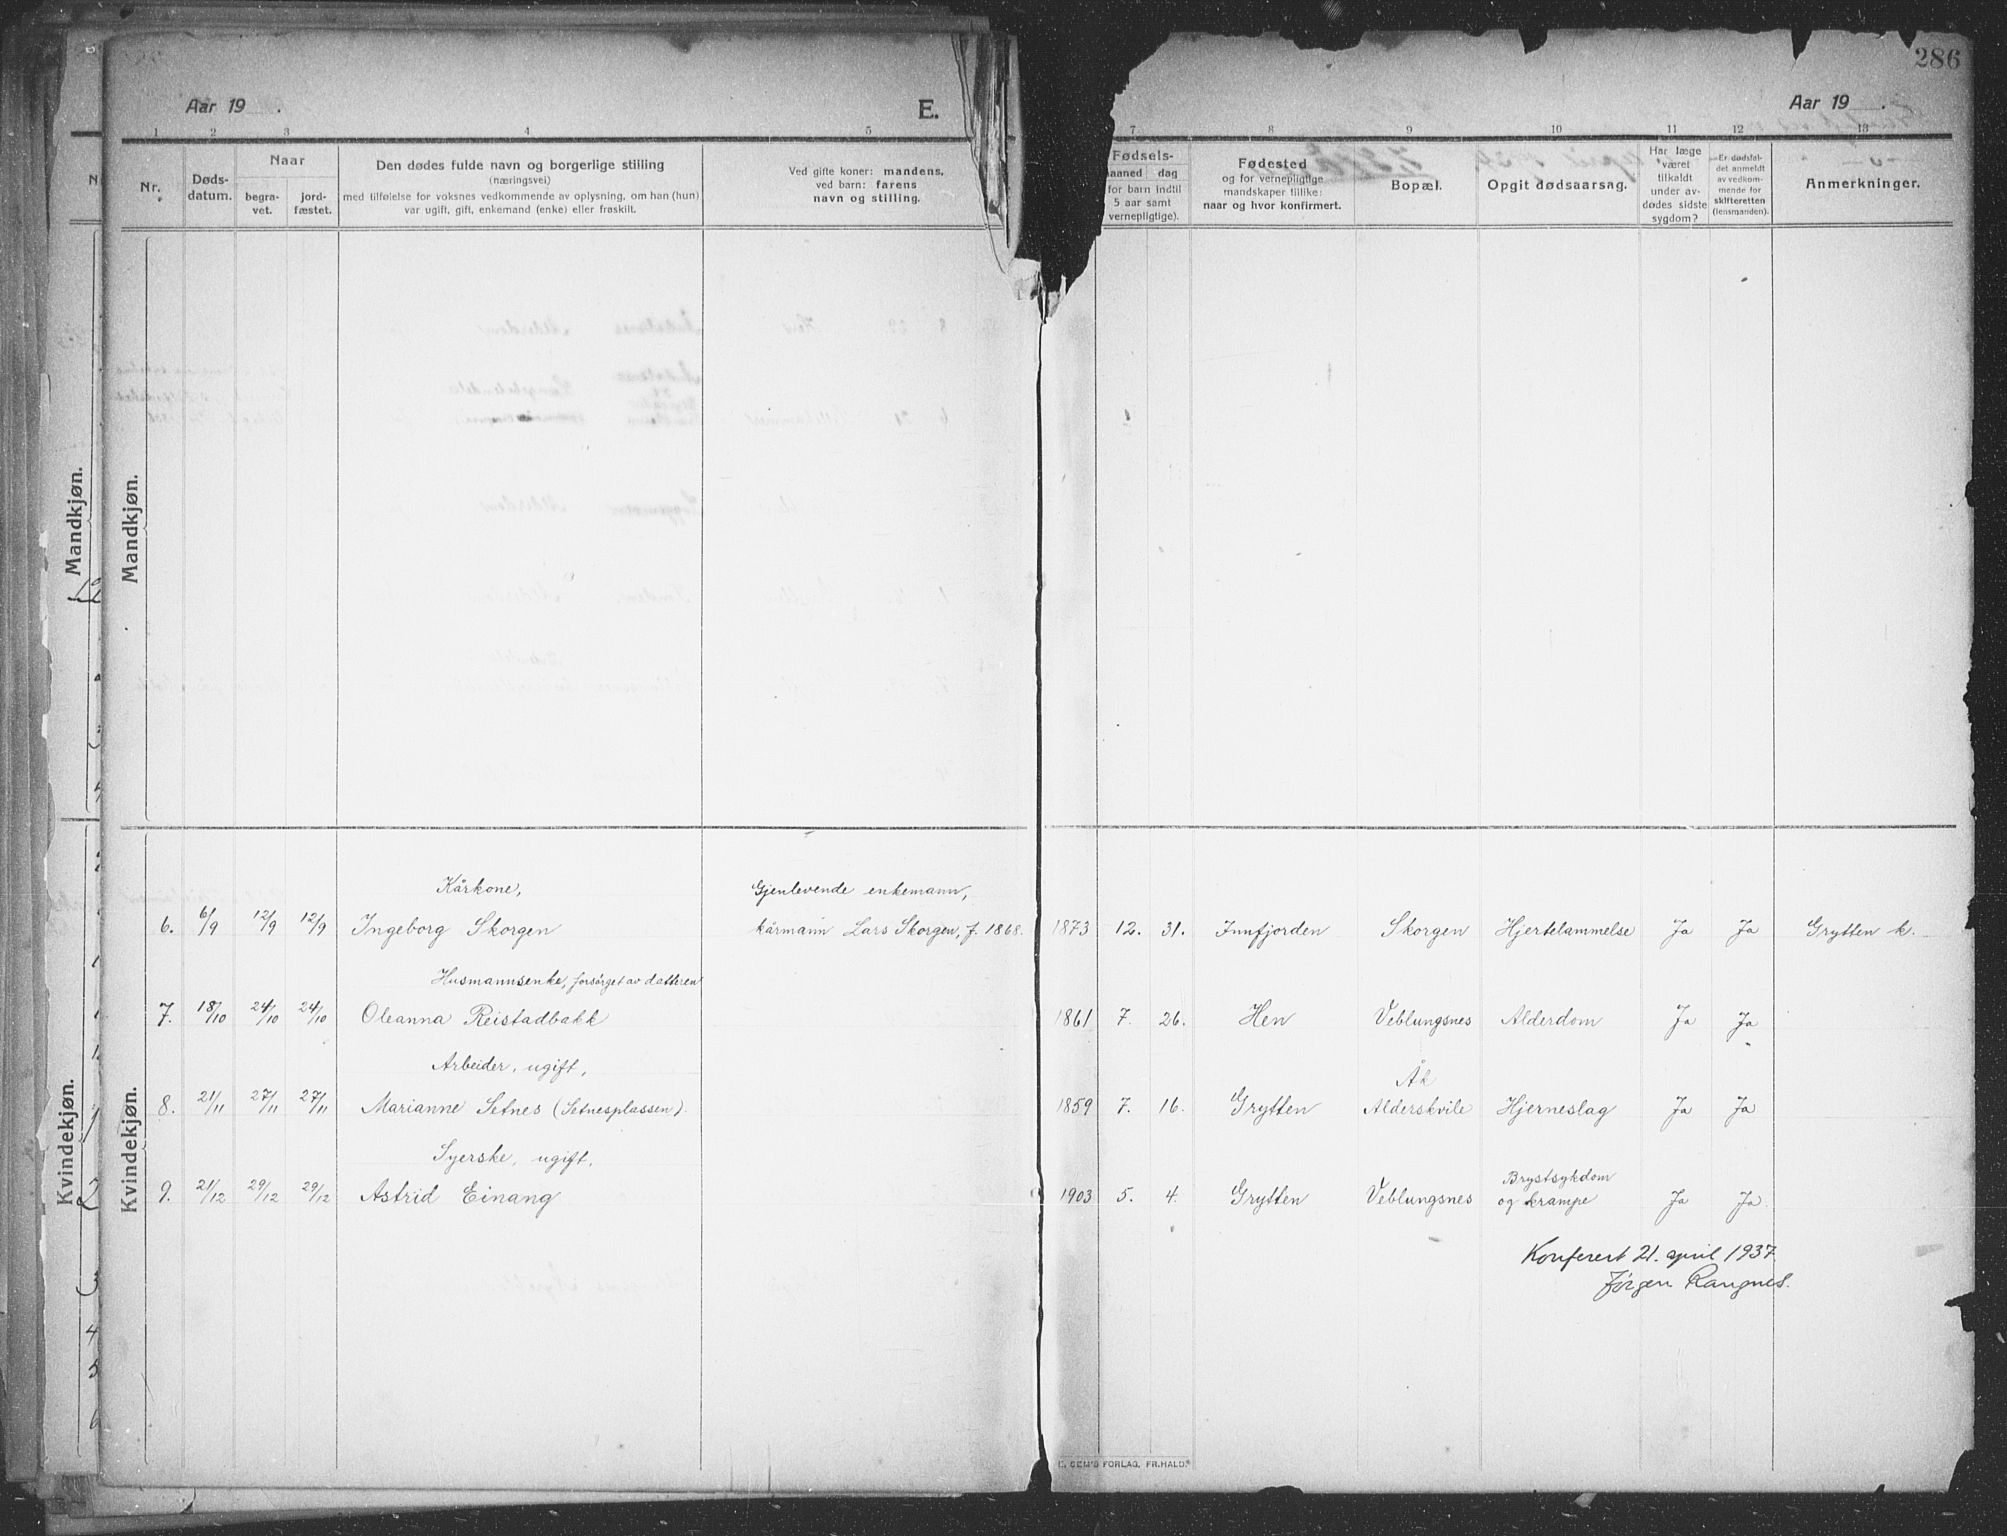 286
Aar 19    .
E.
Aar 19    .
1 2 3 4 5 7 8 9 10 11 12 13
Nr.
Døds-
datum.
Naar
begra-
vet.
jord-
fæstet.
Den dødes fulde navn og borgerlige stilling
(næringsvei)
med tilføielse for voksnes vedkommende av oplysning, om han (hun)
var ugift, gift, enkemand (enke) eller fraskilt.
Ved gifte koner: mandens,
ved barn: farens
navn og stilling.
Fødsels-
maaned dag
for barn indtil
5 aar samt
vernepligtige).
Fødested
og for vernepligtige
mandskaper tillike:
naar og hvor konfirmert.
Bopæl.
Opgit dødsaarsag.
Har læge
været
tilkaldt
under av-
dødes sidste
sygdom?
Er dødsfal-
det anmeldt
av vedkom-
mende for
skifteretten
(lensmanden).
Anmerkninger.
Mandkjøn.
Mandkjøn.
Kvindekjøn.
Kvindekjøn.
Kårkone, Gjenlevende enkemann,
6. 6/9 12/9 12/9 Ingeborg Skorgen kårmann Lars Skorgen, f. 1868. 1873 12. 31. Innfjorden Skorgen Hjertelammelse Ja Ja Grytten k.
Husmannsenke, forsørget av datteren
7. 18/10 24/10 24/10 Oleanna Reistadbakk 1861 7. 26. Hen Veblungsnes Alderdom Ja Ja
Arbeider, ugift, Åk
8. 21/11 27/11 27/11 Marianne Setnes (Setnesplassen). 1859 7. 16. Grytten Alderskvile Hjerneslag Ja Ja
Syerske, ugift, Brystsykdom
9. 21/12 29/12 29/12 Astrid Einang 1903 5. 4. Grytten Veblungsnes og krampe Ja Ja.
Konferert 21. april 1937.
Jørgen Rangnes.
E. SEM'S FORLAG, FR.HALD.